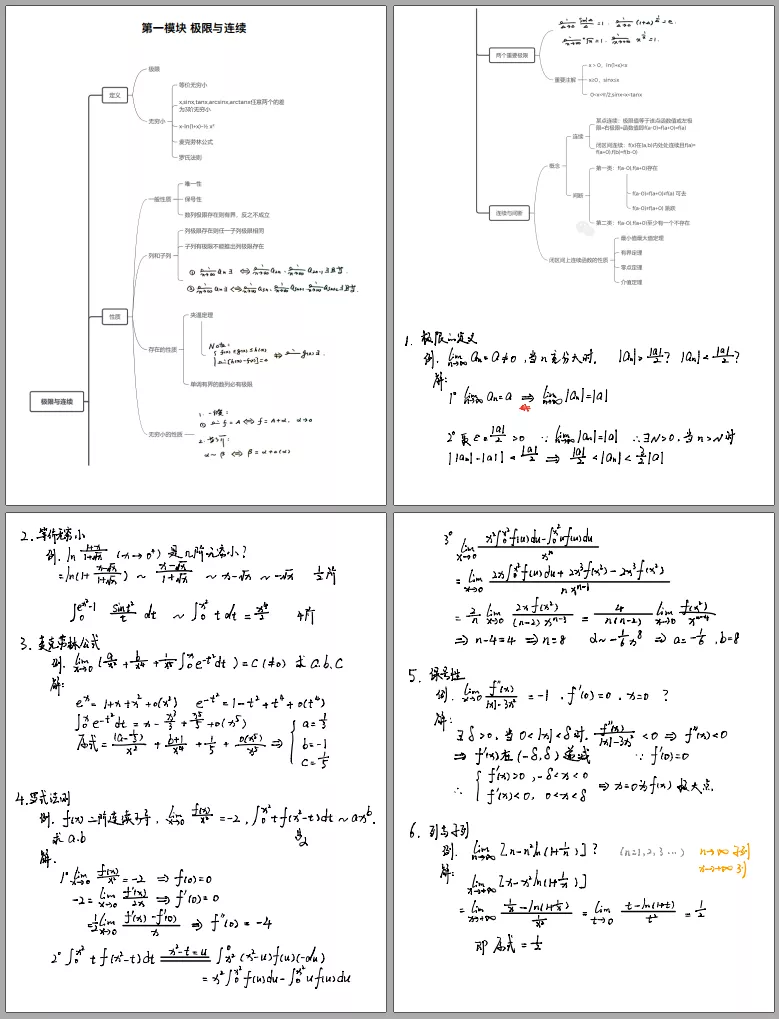 第一模块 极限与连续
极限
定义
等价无穷小
x,sinx,tanx,arcsinx,arctanx任意两个的差
为3阶无穷小
无穷小
x-ln(1+x)~½ x²
麦克劳林公式
罗氏法则
唯一性
一般性质
保号性
数列极限存在则有界，反之不成立
列极限存在则任一子列极限相同
列和子列
子列有极限不能推出列极限存在
性质
夹逼定理
存在的性质
单调有界的数列必有极限
极限与连续
无穷小的性质
1. 一般:
α ~ β ⇔ β = α + o(α)
两个重要极限
x > 0，ln(1+x)<x
重要注解
x≥0，sinx≤x
0<x<π/2,sinx<x<tanx
某点连续：极限值等于该点函数值或左极
限=右极限=函数值即f(a-0)=f(a+0)=f(a)
连续
闭区间连续：f(x)在(a,b)内处处连续且f(a)=
f(a+0),f(b)=f(b-0)
概念
第一类：f(a-0),f(a+0)存在
f(a-0)=f(a+0)≠f(a) 可去
间断
f(a-0)≠f(a+0) 跳跃
连续与间断
第二类：f(a-0),f(a+0)至少有一个不存在
最小值最大值定理
有界定理
闭区间上连续函数的性质
零点定理
介值定理
1. 极限的定义
例. lim n→∞ an = a ≠ 0, 当n充分大时, |an| > |a|/2? |an| < |a|/2?
解:
1° lim n→∞ an = a ⇒ lim n→∞ |an| = |a|
2° 取 ε = |a|/2 > 0 ∵ lim n→∞ |an| = |a| ∴ ∃N>0, 当n>N时
||an| - |a|| < |a|/2 ⇒ |a|/2 < |an| < 3/2|a|
2. 等价无穷小
例. ln (1+x)/(1+√x) (x→0⁺) 是几阶无穷小?
= ln(1 + (x-√x)/(1+√x)) ~ (x-√x)/(1+√x) ~ x-√x ~ -√x 1/2阶
∫₀^(e^x²-1) sint²/t dt ~ ∫₀^x² t dt = x⁴/2 4阶
3. 麦克劳林公式
例. lim x→0 (a/x² + b/x⁴ + 1/x⁵ ∫₀^x e^(-t²)dt) = c (≠0) 求 a.b.c
解:
e^x = 1+x+x²+o(x²) e^(-t²) = 1-t²+t⁴+o(t⁴)
∫₀^x e^(-t²)dt = x - x³/3 + x⁵/5 + o(x⁵)
原式 = (a-1/3)/x² + (b+1)/x⁴ + 1/5 + o(x⁵)/x⁵ ⇒ { a = 1/3
b = -1
c = 1/5
例. f(x)二阶连续可导, lim x→0 f(x)/x² = -2, ∫₀^x² t f(x²-t)dt ~ ax^b.
求 a.b
解.
1° lim x→0 f(x)/x² = -2 ⇒ f(0)=0
-2 = lim x→0 f'(x)/2x ⇒ f'(0)=0
= 1/2 lim x→0 (f'(x)-f'(0))/x ⇒ f''(0) = -4
2° ∫₀^x² t f(x²-t)dt =(x²-t=u)= ∫_x²^0 (x²-u)f(u)(-du)
= x²∫₀^x² f(u)du - ∫₀^x² u f(u)du
3° lim x→0 (x²∫₀^x² f(u)du - ∫₀^x² u f(u)du)/xⁿ
= lim x→0 (2x∫₀^x² f(u)du + 2x³f(x²) - 2x³f(x²))/(n xⁿ⁻¹)
= 2/n lim x→0 2xf(x²)/((n-2)xⁿ⁻³) = 4/(n(n-2)) lim x→0 f(x²)/xⁿ⁻⁴
⇒ n-4=4 ⇒ n=8 α ~ -1/6 x⁸ ⇒ a = -1/6, b=8
5. 保号性
例. lim x→0 f''(x)/(|x|-3x²) = -1, f'(0)=0, x=0 ?
解:
∃δ>0, 当0<|x|<δ时, f''(x)/(|x|-3x²) < 0 ⇒ f''(x)<0
⇒ f'(x)在(-δ,δ)递减 ∵ f'(0)=0
∴ { f'(x)>0, -δ<x<0
f'(x)<0, 0<x<δ ⇒ x=0为f(x)极大点.
6. 列与子列
例. lim n→∞ [n-n²ln(1+1/n)] ? (n=1,2,3…) n→∞ 子列
x→+∞ 列
解:
lim x→+∞ [x-x²ln(1+1/x)]
= lim x→+∞ (1/x - ln(1+1/x))/(1/x²) = lim t→0 (t-ln(1+t))/t² = 1/2
即 原式 = 1/2